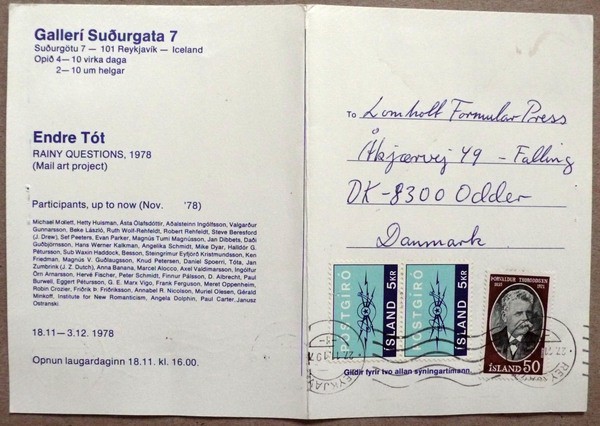 Gallerí Suðurgata 7
Suðurgötu 7 — 101 Reykjavík — Iceland
Opið 4—10 virka daga
2—10 um helgar
Endre Tót
RAINY QUESTIONS, 1978
(Mail art project)
Participants, up to now (Nov. '78)
Michael Mollett, Hetty Huisman, Ásta Ólafsdóttir, Aðalsteinn Ingólfsson, Valgarður
Gunnarsson, Beke László, Ruth Wolf-Rehfeldt, Robert Rehfeldt, Steve Beresford
(J. Drew), Sef Peeters, Evan Parker, Magnús Tumi Magnússon, Jan Dibbets, Daði
Guðbjörnsson, Hans Werner Kalkman, Angelika Schmidt, Mike Dyar, Halldór G.
Pétursson, Sub Waxin Haddock, Besson, Steingrímur Eyfjörð Kristmundsson, Ken
Friedman, Magnús V. Guðlaugsson, Knud Petersen, Daniel Spoerri, Tóta, Jan
Zumbrink (J. Z. Dutch), Anna Banana, Marcel Alocco, Axel Valdimarsson, Ingólfur
Örn Arnarson, Hervé Fischer, Peter Schmidt, Finnur Pálsson, D. Albrecht, Paul
Burwell, Eggert Pétursson, G. E. Marx Vigo, Frank Furgeson, Meret Oppenheim,
Robin Crozier, Friðrik Þ. Friðriksson, Annabel R. Nicolson, Muriel Olesen, Gérald
Minkoff, Institute for New Romanticism, Angela Dolphin, Paul Carter, Janusz
Ostranski.
18.11—3.12. 1978
Opnun laugardaginn 18.11. kl. 16.00.
To Lomholt Formular Press
Åkjærvej 49 - Falling
DK-8300 Odder
Danmark
PÓSTGÍRÓ
ÍSLAND 5 KR
PÓSTGÍRÓ
ÍSLAND 5 KR
ÞORVALDUR THORODDSEN
ÍSLAND 50
Gildir fyrir tvo allan sýningartímann.